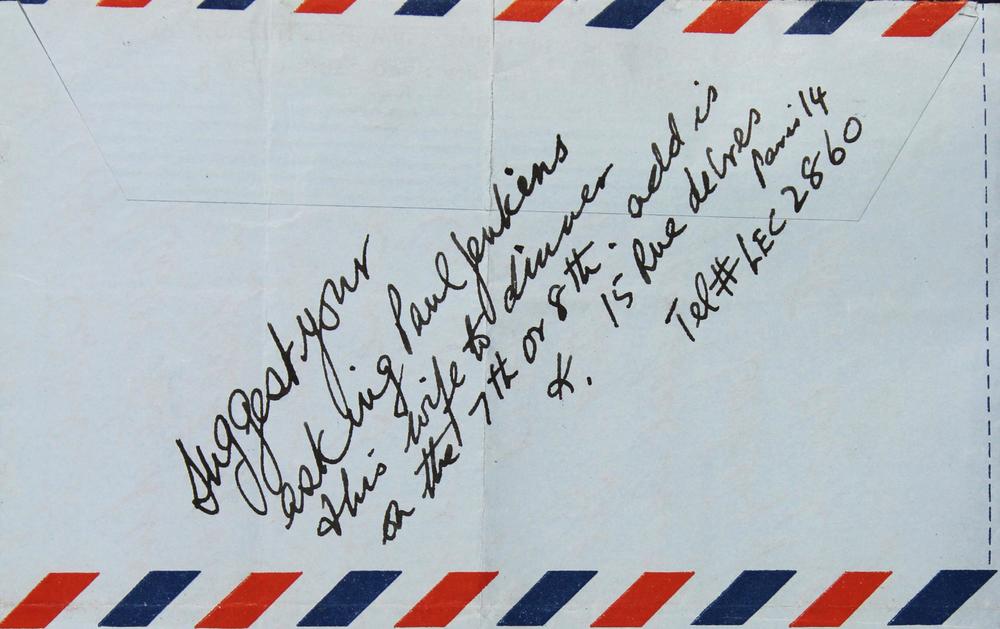 Suggest your
asking Paul Jenkins
& his wife to dinner
on the 7th or 8th. add is
15 Rue decres
Paris 14
Tel# LEC 2860
K.